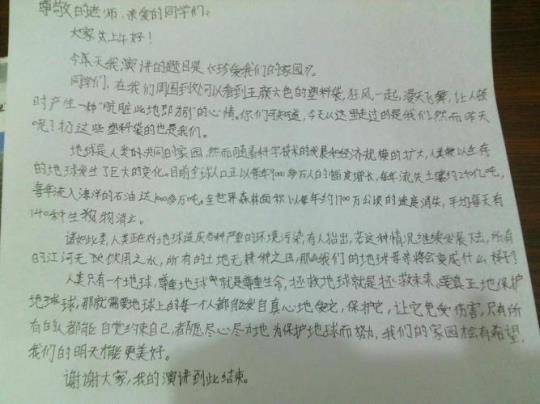 尊敬的老师、亲爱的同学们:
大家上午好!
今天我演讲的题目是《珍爱我们的家园》。
同学们,在我们周围到处可以看到五颜六色的塑料袋,狂风一起,漫天飞舞,让人顿
时产生一种"肮脏此地即为"的心情。你们可知道,今天从这里走过的是我们,然而昨天
呢?扔这些塑料袋的也是我们。
地球是人类的共同的家园,然而随着科学技术的发展和经济规模的扩大,人类赖以生存
的地球发生了巨大的变化。目前全球人口正以每年900多万人的幅度增长,每年流失土壤约240亿吨,
每年流入海洋的石油达1000多万吨。全世界森林面积以每年约1700万公顷的速度消失,平均每天有
140种生物消亡。
诸如此类,人类正在对地球造成各种严重的环境污染,有人指出,若这种情况继续发展下去,所有
的江河无可饮用之水,所有的土地无耕种之田,那么我们的地球等者将会变成什么样子?
人类只有一个地球,尊重地球就是尊重生命,拯救地球就是拯救未来。要真正地保护
地球,那就需要地球上的每一个人都能发自真心地爱它,保护它,让它免受伤害,只有所
有的人都能自觉约束自己,都愿尽心尽力地为保护地球而努力,我们的家园才会有希望,
我们的明天才能更美好。
谢谢大家,我的演讲到此结束。